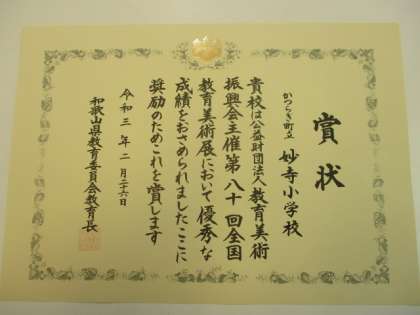 賞状
かつらぎ町立
妙寺小学校
貴校は公益財団法人教育美術
振興会主催第八十回全国
教育美術展において優秀な
成績をおさめられましたここに
奨励のためこれを賞します
令和三年二月二十六日
和歌山県教育委員会教育長